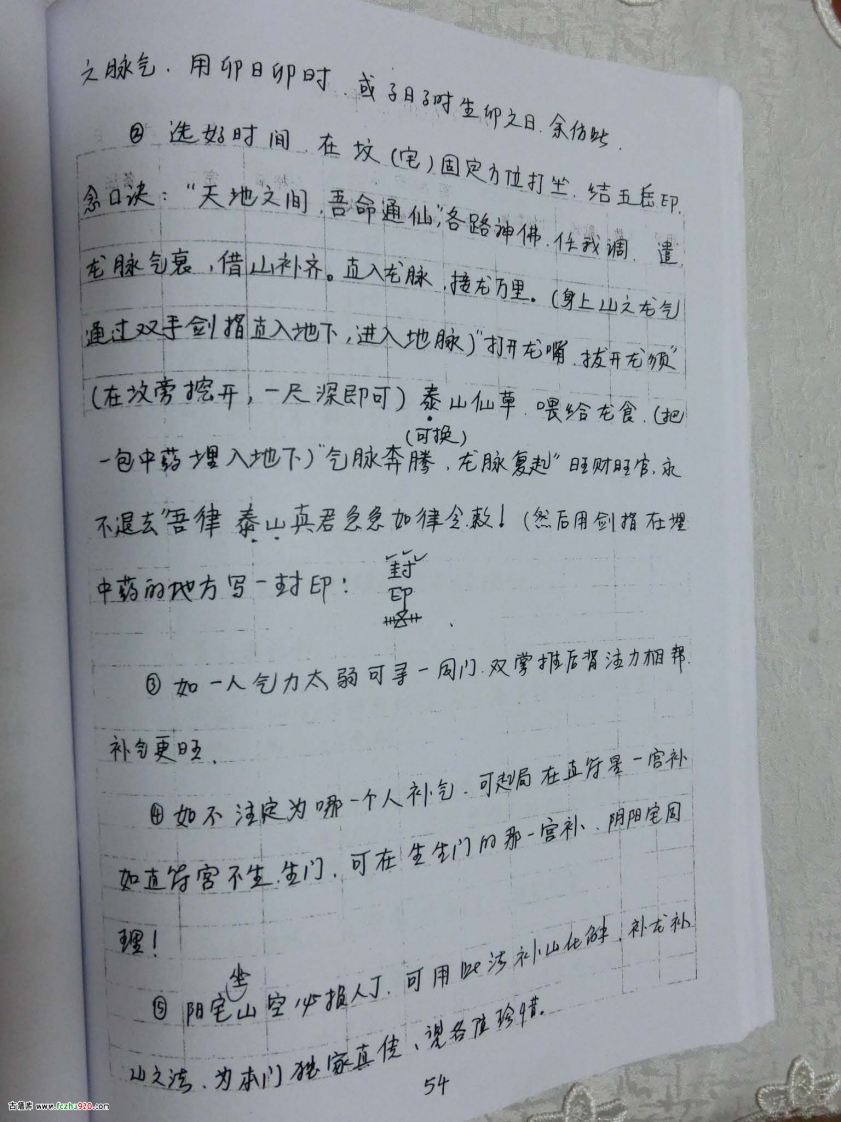 之脉气.用卯日卯时.或子日子时生卯之日.余仿此.
② 选好时间.在坟(宅)固定方位打坐.结五岳印.
念口诀:“天地之间,吾命通仙”,各路神佛.任我调.遣,
龙脉气衰,借山补齐。直入龙脉,接龙万里。(身上山之龙气
通过双手剑指直入地下,进入地脉)“打开龙嘴.拔开龙须”
(在坟旁挖开,一尺深即可)泰山仙草.喂给龙食.(把
(可换)
一包中药埋入地下)“气脉奔腾.龙脉复起”旺财旺官.永
不退去“吾律 泰山真君急急如律令.敕!(然后用剑指在埋
中药的地方写一封印:
封
印
③ 如一人气力太弱可寻一同门.双掌推后背注力相帮.
补气更旺.
④ 如不注定为哪一个人补气.可起局在直符星一宫补
如直符宫不生.生门.可在生生门的那一宫补.阴阳宅同
理!
坐
⑤ 阳宅山空必损人丁.可用此法补山化解.补龙补
山之法.为本门独家真传、望各值珍惜。
54
古籍库 www.fczhu920.com